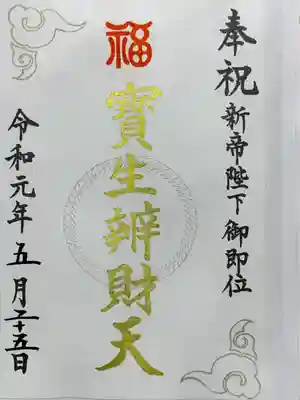 奉祝新帝陛下御即位
福
寳生辨財天
令和元年五月二十五日